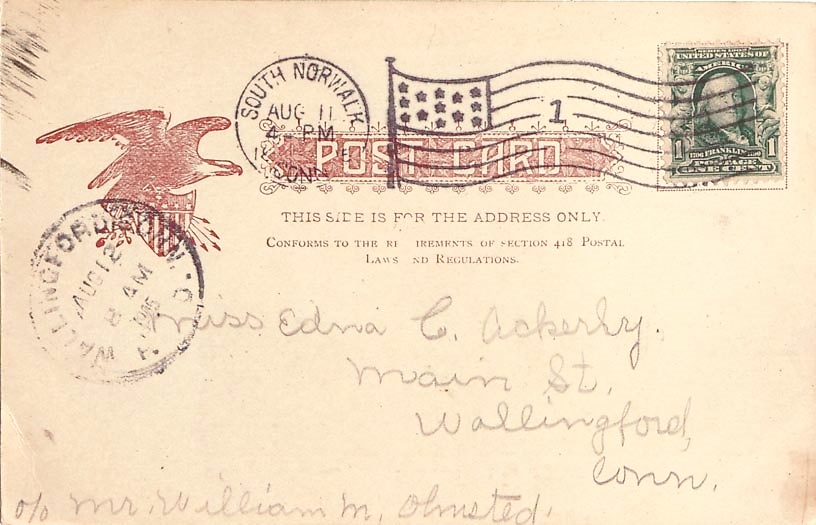 SOUTH NORWALK
AUG 11
4 - PM
CONN.
1
SERIES 1902
UNITED STATES OF
AMERICA
1706 FRANKLIN 1790
1 POSTAGE 1
ONE CENT
POST CARD
THIS SIDE IS FOR THE ADDRESS ONLY.
CONFORMS TO THE RE IREMENTS OF SECTION 418 POSTAL
LAWS ND REGULATIONS.
WALLINGFORD, CONN.
AUG 12
8 AM
Miss Edna C. Ackerly.
Main St.
Wallingford,
Conn.
c/o Mr. William M. Olmsted.